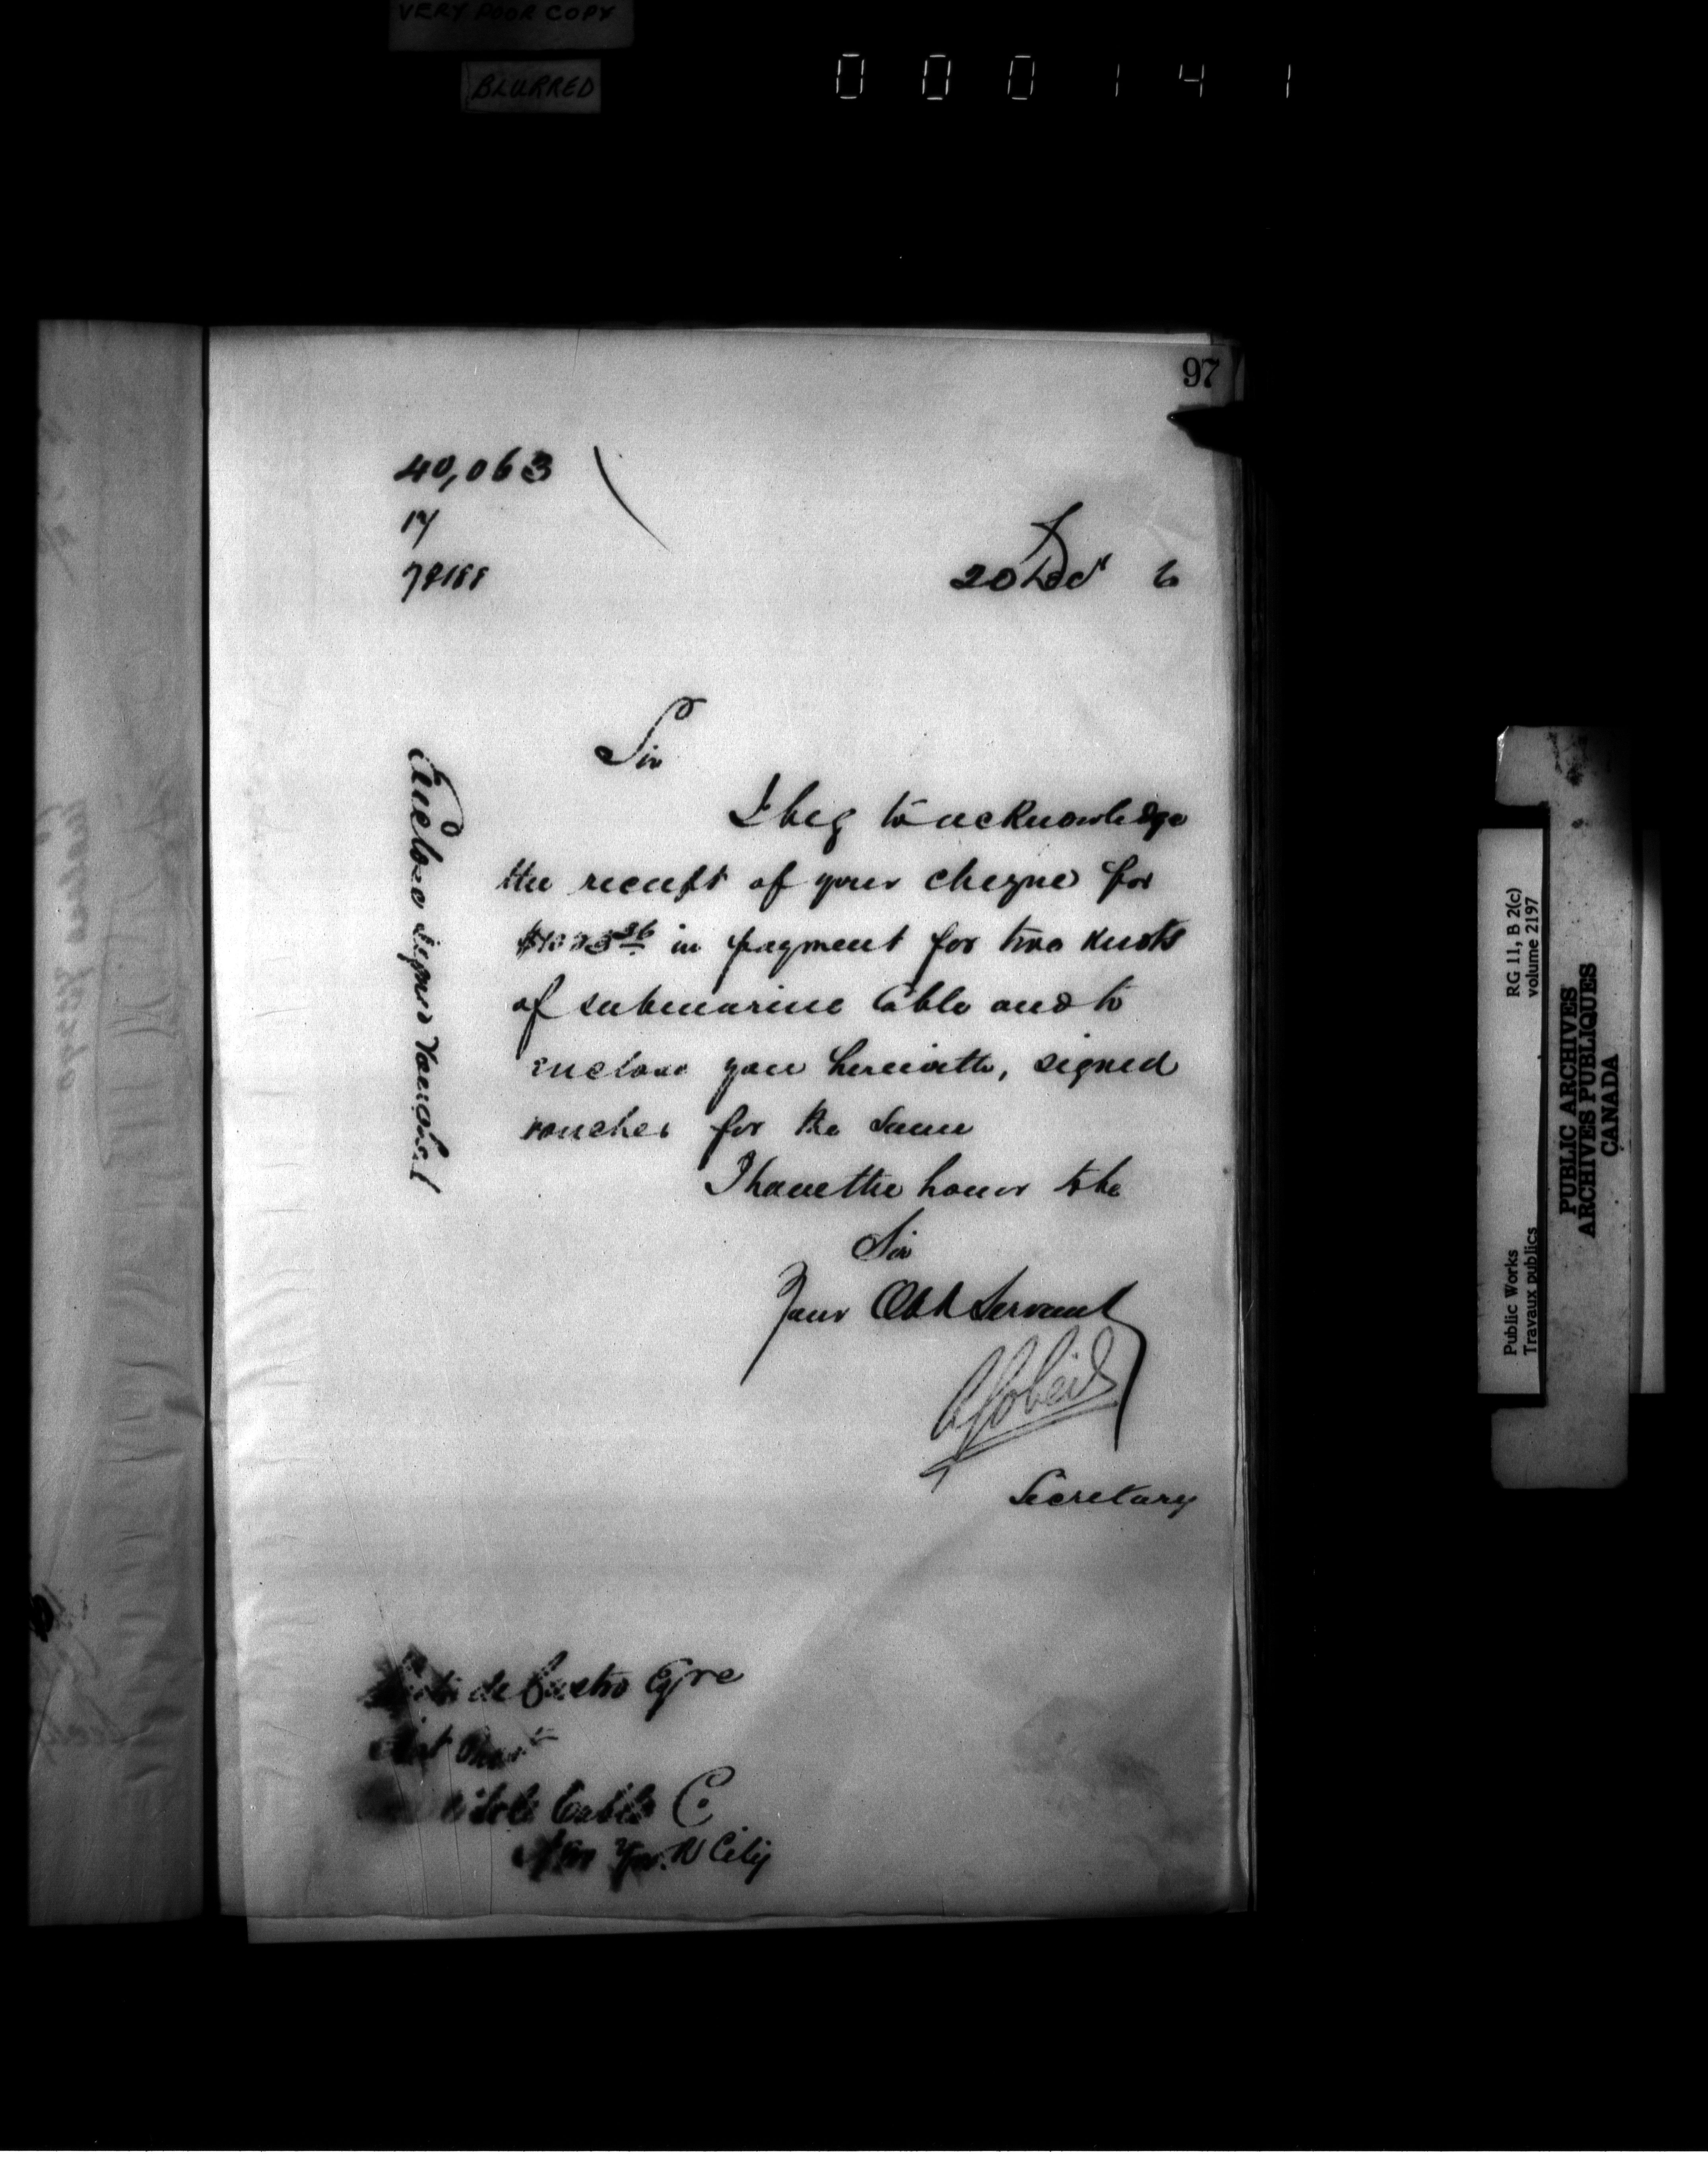 VERY POOR COPY
BLURRED
000141
97
40,063
17
20 Dec 6
Sir
I beg to acknowledge
the receipt of your cheque for
in payment for two knots
of submarine Cable and to
enclose you herewith, signed
voucher for the same
I have the honor to be
Sir
Your Obt Servant
AGobeil
Secretary
Enclose signed voucher
de Castro Eqre
Cable Co
New York City
Public Works
Travaux publics
RG 11, B 2(c)
volume 2197
PUBLIC ARCHIVES
ARCHIVES PUBLIQUES
CANADA